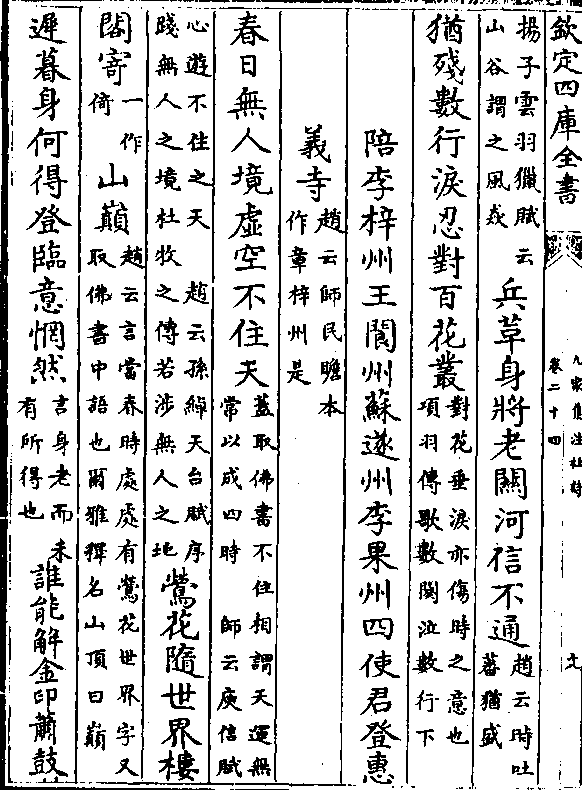 欽定四庫全書
卷二十四
九家集注杜詩
揚子雲羽獵賦云
山谷謂之風衣
兵革身將老關河信不通
趙云時吐
蕃猶盛
猶殘數行淚忍對百花叢
對花垂淚亦傷時之意也
項羽傳歌數闋泣數行下
陪李梓州王閬州蘇遂州李果州四使君登惠
義寺
趙云師民瞻本
作章梓州是
春日無人境虛空不住天
蓋取佛書不住相謂天運無
常以成四時 師云庾信賦
心遊不住之天 趙云孫綽天台賦序
踐無人之境杜牧之傳若涉無人之地
鶯花隨世界樓
閣寄
一作
倚
山巔
趙云言當春時處處有鶯花世界字又
取佛書中語也爾雅釋名山頂曰巔
遲暮身何得登臨意惘然
言身老而未
有所得也
誰能解金印蕭鼓